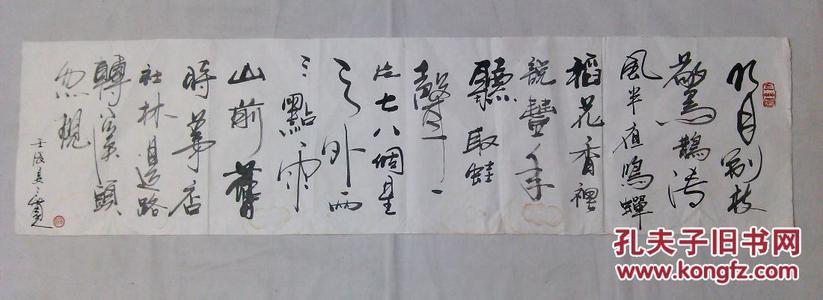 明月别枝
驚鵲清
風半夜鳴蟬
稻花香裡
說豐年
聽取蛙
聲一
片七八個星
天外兩
三點雨
山前舊
時茅店
社林邊路
轉溪頭
忽現
孔夫子旧书网
www.kongfz.com